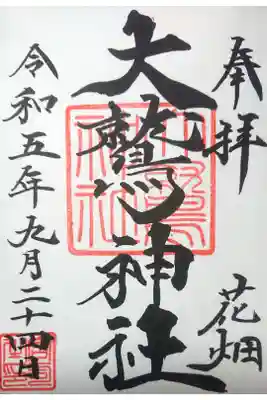 奉拝
花畑
大鷲神社
令和五年九月二十四日